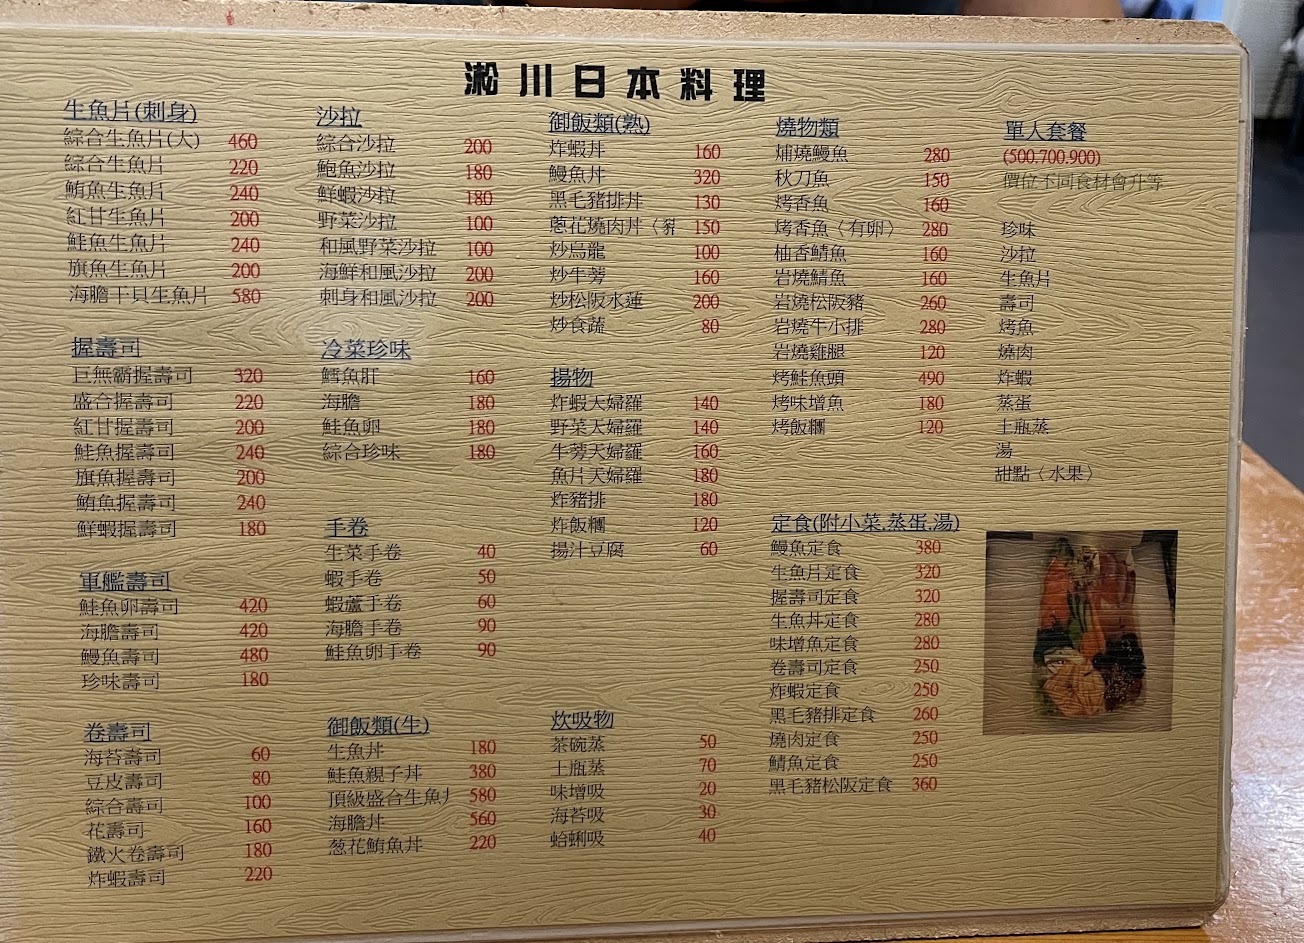 淞川日本料理
生魚片(刺身)
綜合生魚片(大) 460
綜合生魚片 220
鮪魚生魚片 240
紅甘生魚片 200
鮭魚生魚片 240
旗魚生魚片 200
海膽干貝生魚片 580
握壽司
巨無霸握壽司 320
盛合握壽司 220
紅甘握壽司 200
鮭魚握壽司 240
旗魚握壽司 200
鮪魚握壽司 240
鮮蝦握壽司 180
軍艦壽司
鮭魚卵壽司 420
海膽壽司 420
鰻魚壽司 480
珍味壽司 180
卷壽司
海苔壽司 60
豆皮壽司 80
綜合壽司 100
花壽司 160
鐵火卷壽司 180
炸蝦壽司 220
沙拉
綜合沙拉 200
鮑魚沙拉 180
鮮蝦沙拉 180
野菜沙拉 100
和風野菜沙拉 100
海鮮和風沙拉 200
刺身和風沙拉 200
冷菜珍味
鱈魚肝 160
海膽 180
鮭魚卵 180
綜合珍味 180
手卷
生菜手卷 40
蝦手卷 50
蝦蘆手卷 60
海膽手卷 90
鮭魚卵手卷 90
御飯類(生)
生魚丼 180
鮭魚親子丼 380
頂級盛合生魚片 580
海膽丼 560
葱花鮪魚丼 220
御飯類(熟)
炸蝦丼 160
鰻魚丼 320
黑毛豬排丼 130
蔥花燒肉丼〈豬 150
炒烏龍 100
炒牛蒡 160
炒松阪水蓮 200
炒食蔬 80
揚物
炸蝦天婦羅 140
野菜天婦羅 140
牛蒡天婦羅 160
魚片天婦羅 180
炸豬排 180
炸飯糰 120
揚汁豆腐 60
炊吸物
茶碗蒸 50
土瓶蒸 70
味增吸 20
海苔吸 30
蛤蜊吸 40
燒物類
蒲燒鰻魚 280
秋刀魚 150
烤香魚 160
烤香魚〈有卵〉 280
柚香鯖魚 160
岩燒鯖魚 160
岩燒松阪豬 260
岩燒牛小排 280
岩燒雞腿 120
烤鮭魚頭 490
烤味增魚 180
烤飯糰 120
定食(附小菜.蒸蛋.湯)
鰻魚定食 380
生魚片定食 320
握壽司定食 320
生魚丼定食 280
味增魚定食 280
卷壽司定食 250
炸蝦定食 250
黑毛豬排定食 260
燒肉定食 250
鯖魚定食 250
黑毛豬松阪定食 360
單人套餐
(500.700.900)
價位不同食材會升等
珍味
沙拉
生魚片
壽司
烤魚
燒肉
炸蝦
蒸蛋
土瓶蒸
湯
甜點〈水果〉